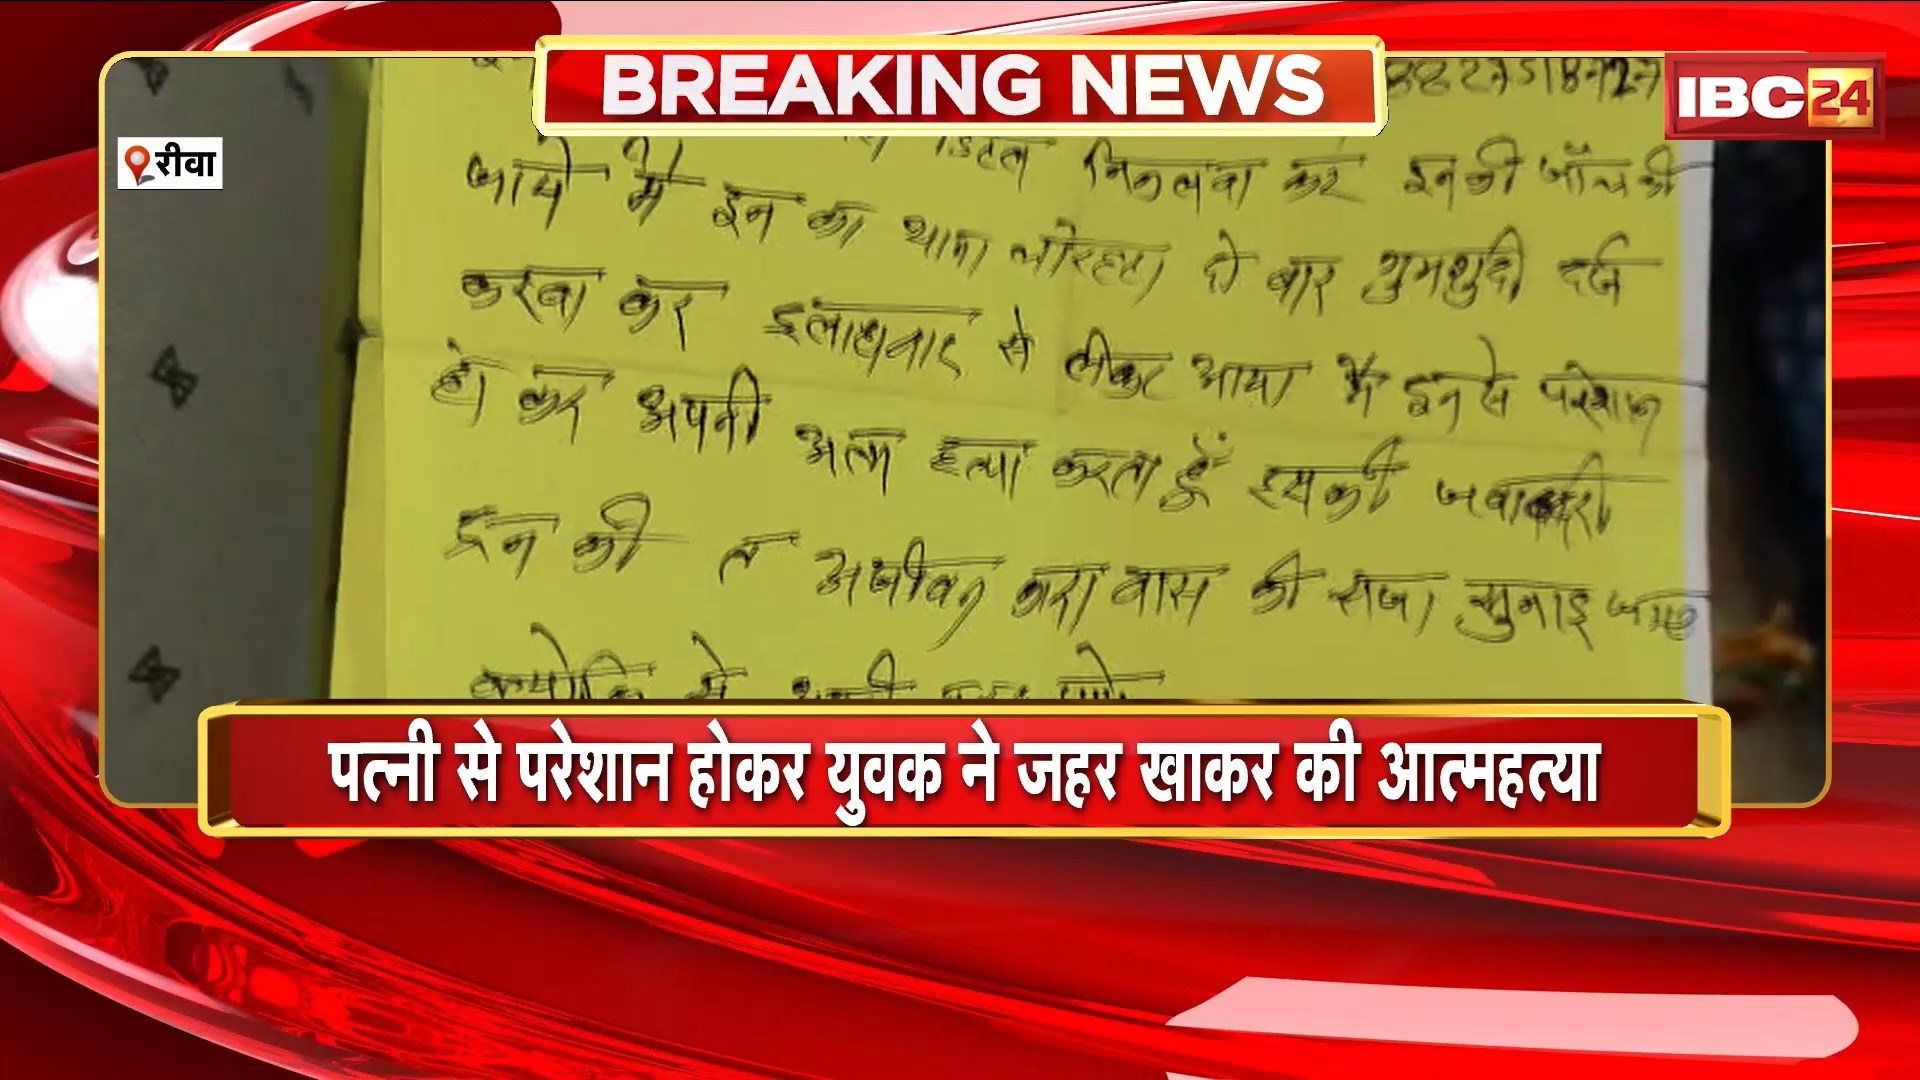 BREAKING NEWS
IBC24
रीवा
डिटेल निकलवा कर इनकी जाँच की
जाये मै इन का थाना चोरहटा दो बार गुमशुदी दर्ज
करवा कर इलाहाबाद से लेकर आया मै इन से परेशान
हो कर अपनी अत्म हत्या करता हूँ इसकी जवाबदारी
इन की त अजीवन कारा वास की सजा सुनाइ जाए
पत्नी से परेशान होकर युवक ने जहर खाकर की आत्महत्या